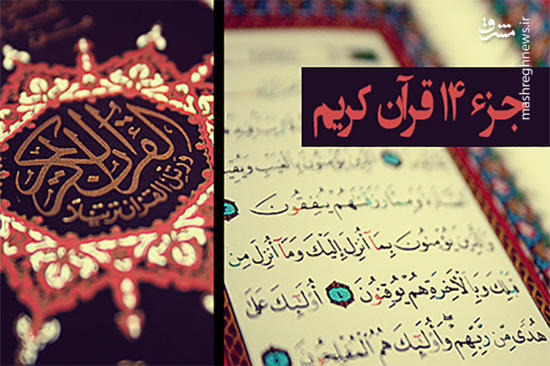 مشرق
mashreghnews.ir
جزء ۱۴ قرآن کریم
القرآن الكريم
ورتل القرآن ترتيلا
يُؤْمِنُونَ بِالْغَيْبِ
وَمِمَّا رَزَقْنَاهُمْ يُنْفِقُونَ
وَالَّذِينَ يُؤْمِنُونَ بِمَا أُنْزِلَ إِلَيْكَ وَمَا أُنْزِلَ مِنْ
قَبْلِكَ وَبِالْآخِرَةِ هُمْ يُوقِنُونَ ٤ أُولَٰئِكَ عَلَىٰ
هُدًى مِنْ رَبِّهِمْ وَأُولَٰئِكَ هُمُ الْمُفْلِحُونَ ٥